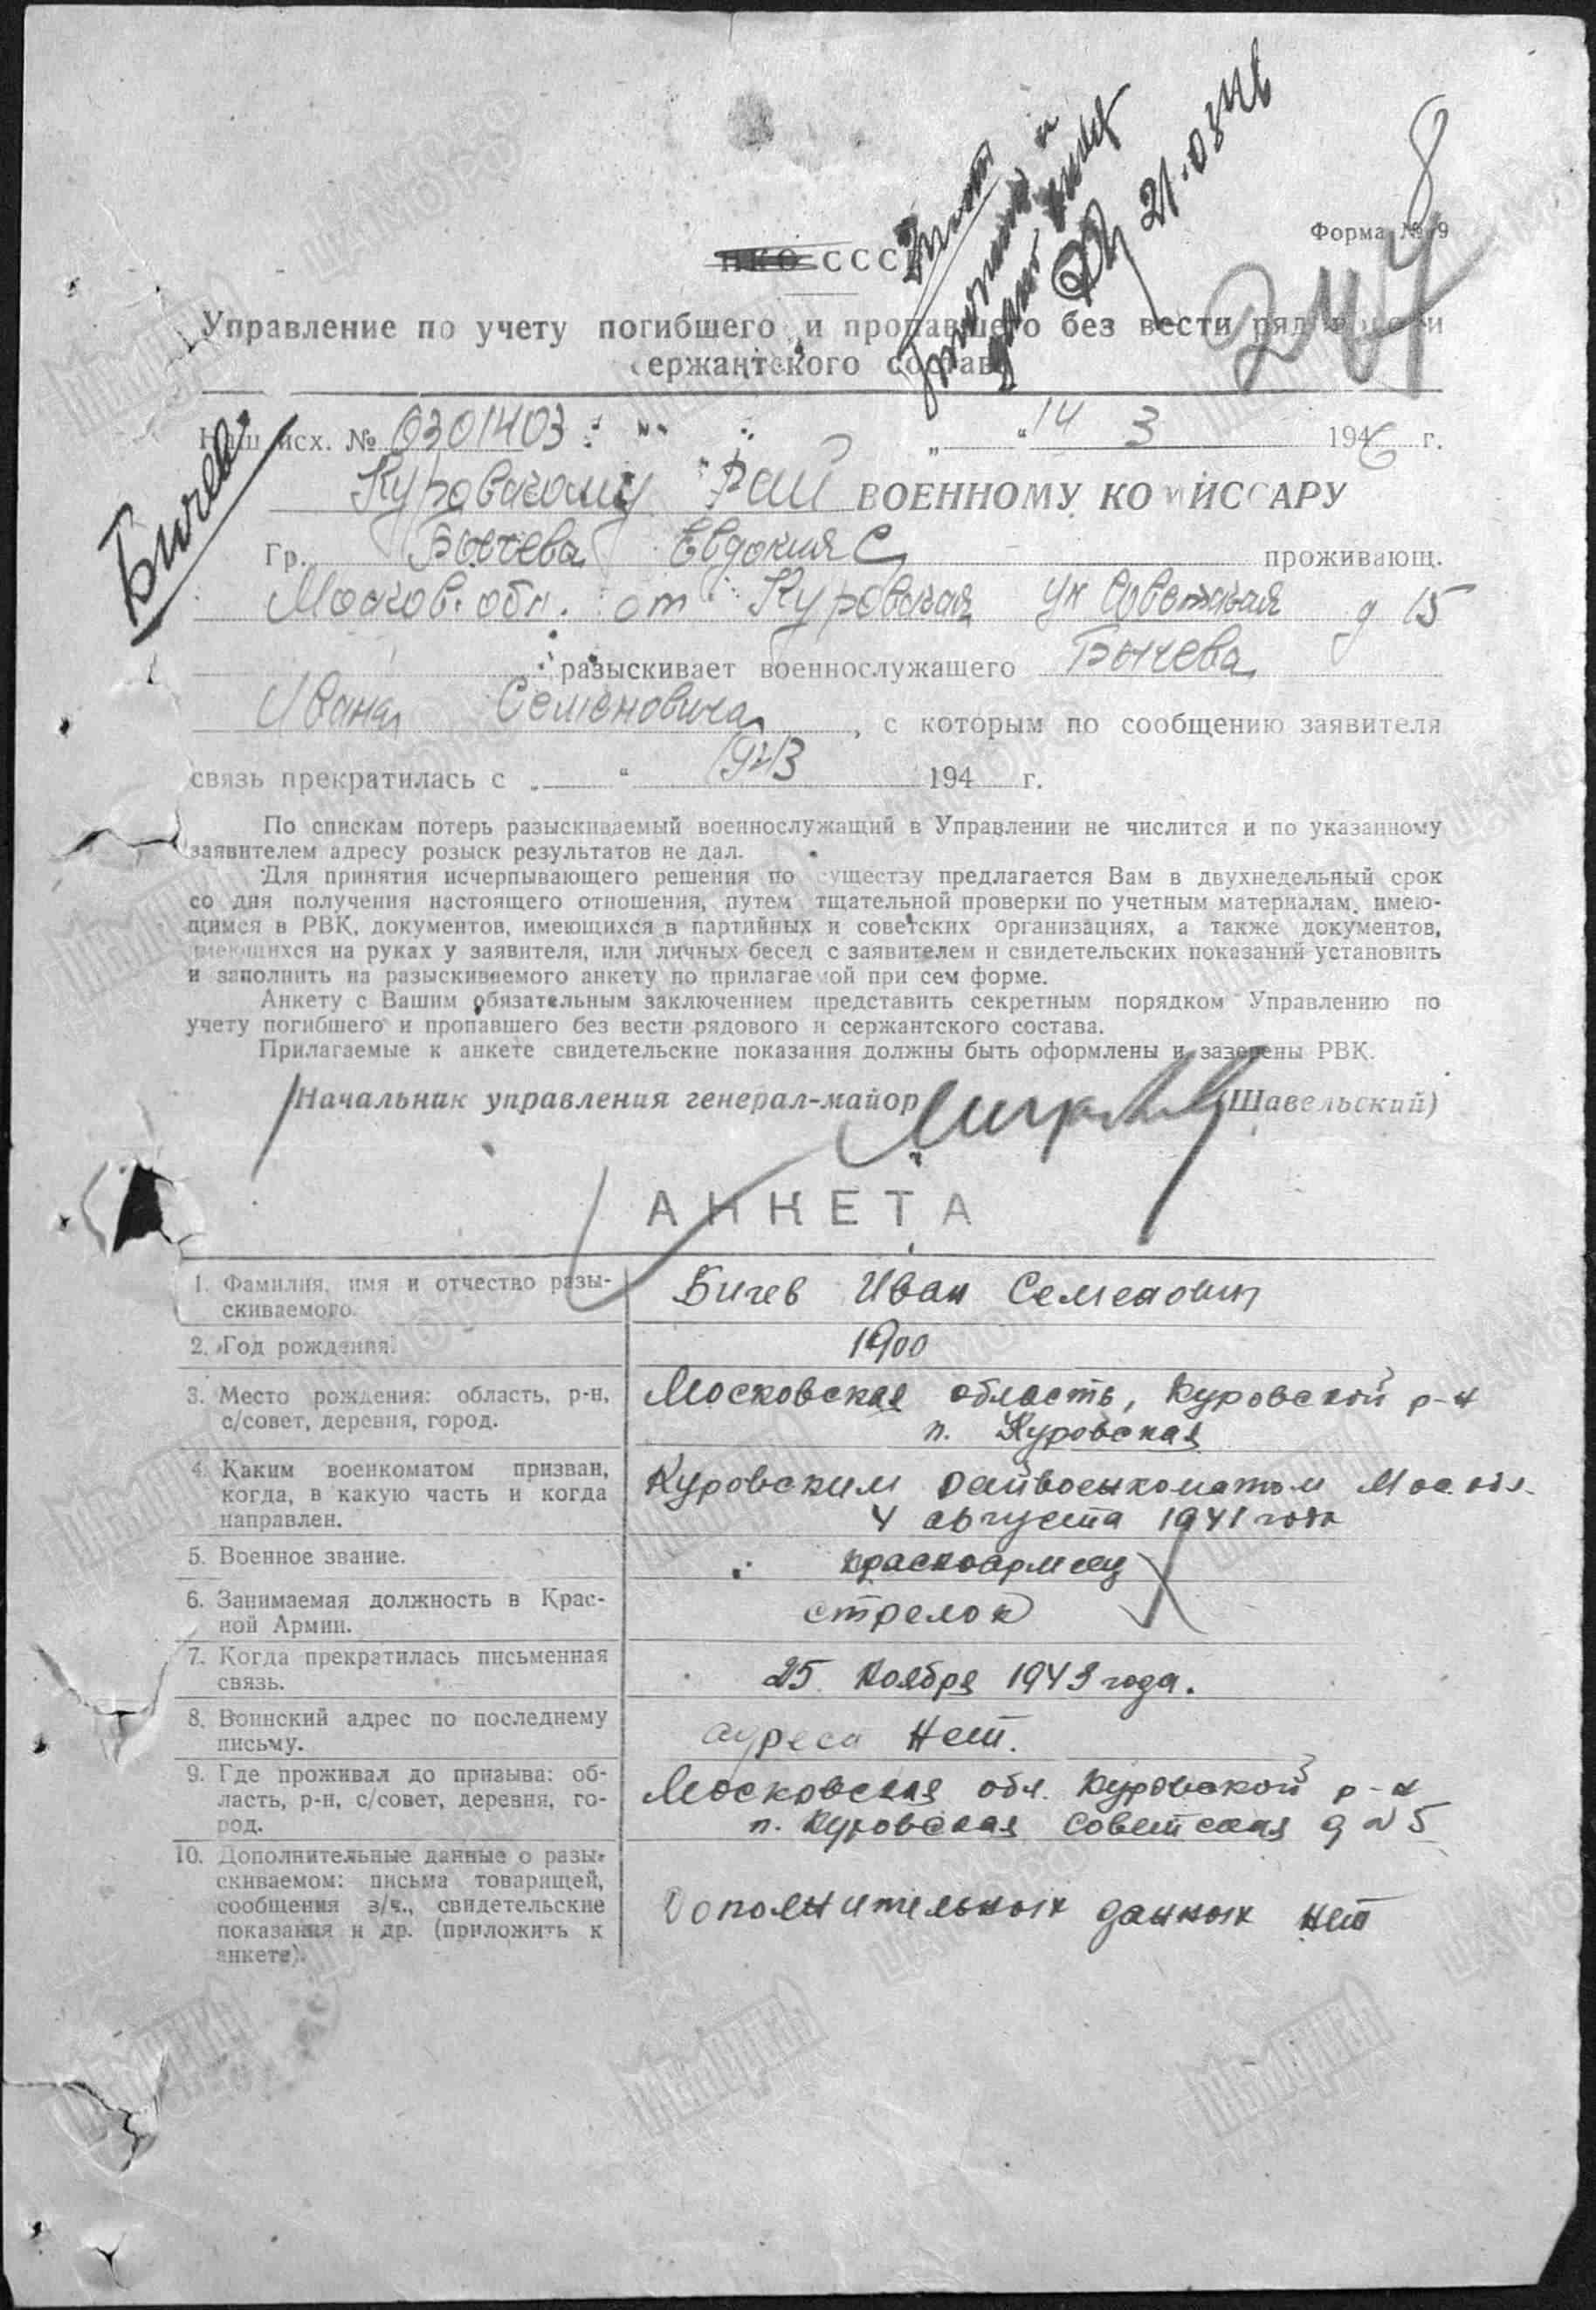 21.03.46
8
Форма № 9
НКО СССР
244
Управление по учету погибшего и пропавшего без вести рядового и
сержантского состава
Наш исх. № 0301403 „ “ 14 3 1946 г.
Бичев
Куровскому Рай ВОЕННОМУ КОМИССАРУ
Гр. Бычева Евдокия С проживающ.
Москов. обл. ст Куровская ул Советская д 15
разыскивает военнослужащего Бычева
Ивана Семеновича, с которым по сообщению заявителя
связь прекратилась с „ “ 1943 194 г.
По спискам потерь разыскиваемый военнослужащий в Управлении не числится и по указанному
заявителем адресу розыск результатов не дал.
Для принятия исчерпывающего решения по существу предлагается Вам в двухнедельный срок
со дня получения настоящего отношения, путем тщательной проверки по учетным материалам, имею-
щимся в РВК, документов, имеющихся в партийных и советских организациях, а также документов,
имеющихся на руках у заявителя, или личных бесед с заявителем и свидетельских показаний установить
и заполнить на разыскиваемого анкету по прилагаемой при сем форме.
Анкету с Вашим обязательным заключением представить секретным порядком Управлению по
учету погибшего и пропавшего без вести рядового и сержантского состава.
Прилагаемые к анкете свидетельские показания должны быть оформлены и заверены РВК.
Начальник управления генерал-майор (Шавельский)
АНКЕТА
1. Фамилия, имя и отчество разы-
скиваемого.
Бичев Иван Семенович
2. Год рождения.
1900
3. Место рождения: область, р-н,
с/совет, деревня, город.
Московская область, Куровской р-н
п. Куровская
4. Каким военкоматом призван,
когда, в какую часть и когда
направлен.
Куровским райвоенкоматом Мос. обл.
4 августа 1941 года
5. Военное звание.
красноармеец
6. Занимаемая должность в Крас-
ной Армии.
стрелок
7. Когда прекратилась письменная
связь.
25 ноября 1943 года.
8. Воинский адрес по последнему
письму.
адреса нет.
9. Где проживал до призыва: об-
ласть, р-н, с/совет, деревня, го-
род.
Московская обл. Куровской р-н
п. Куровская Советская д 25
10. Дополнительные данные о разы-
скиваемом: письма товарищей,
сообщения з/ч., свидетельские
показания и др. (приложить к
анкете).
Дополнительных данных нет